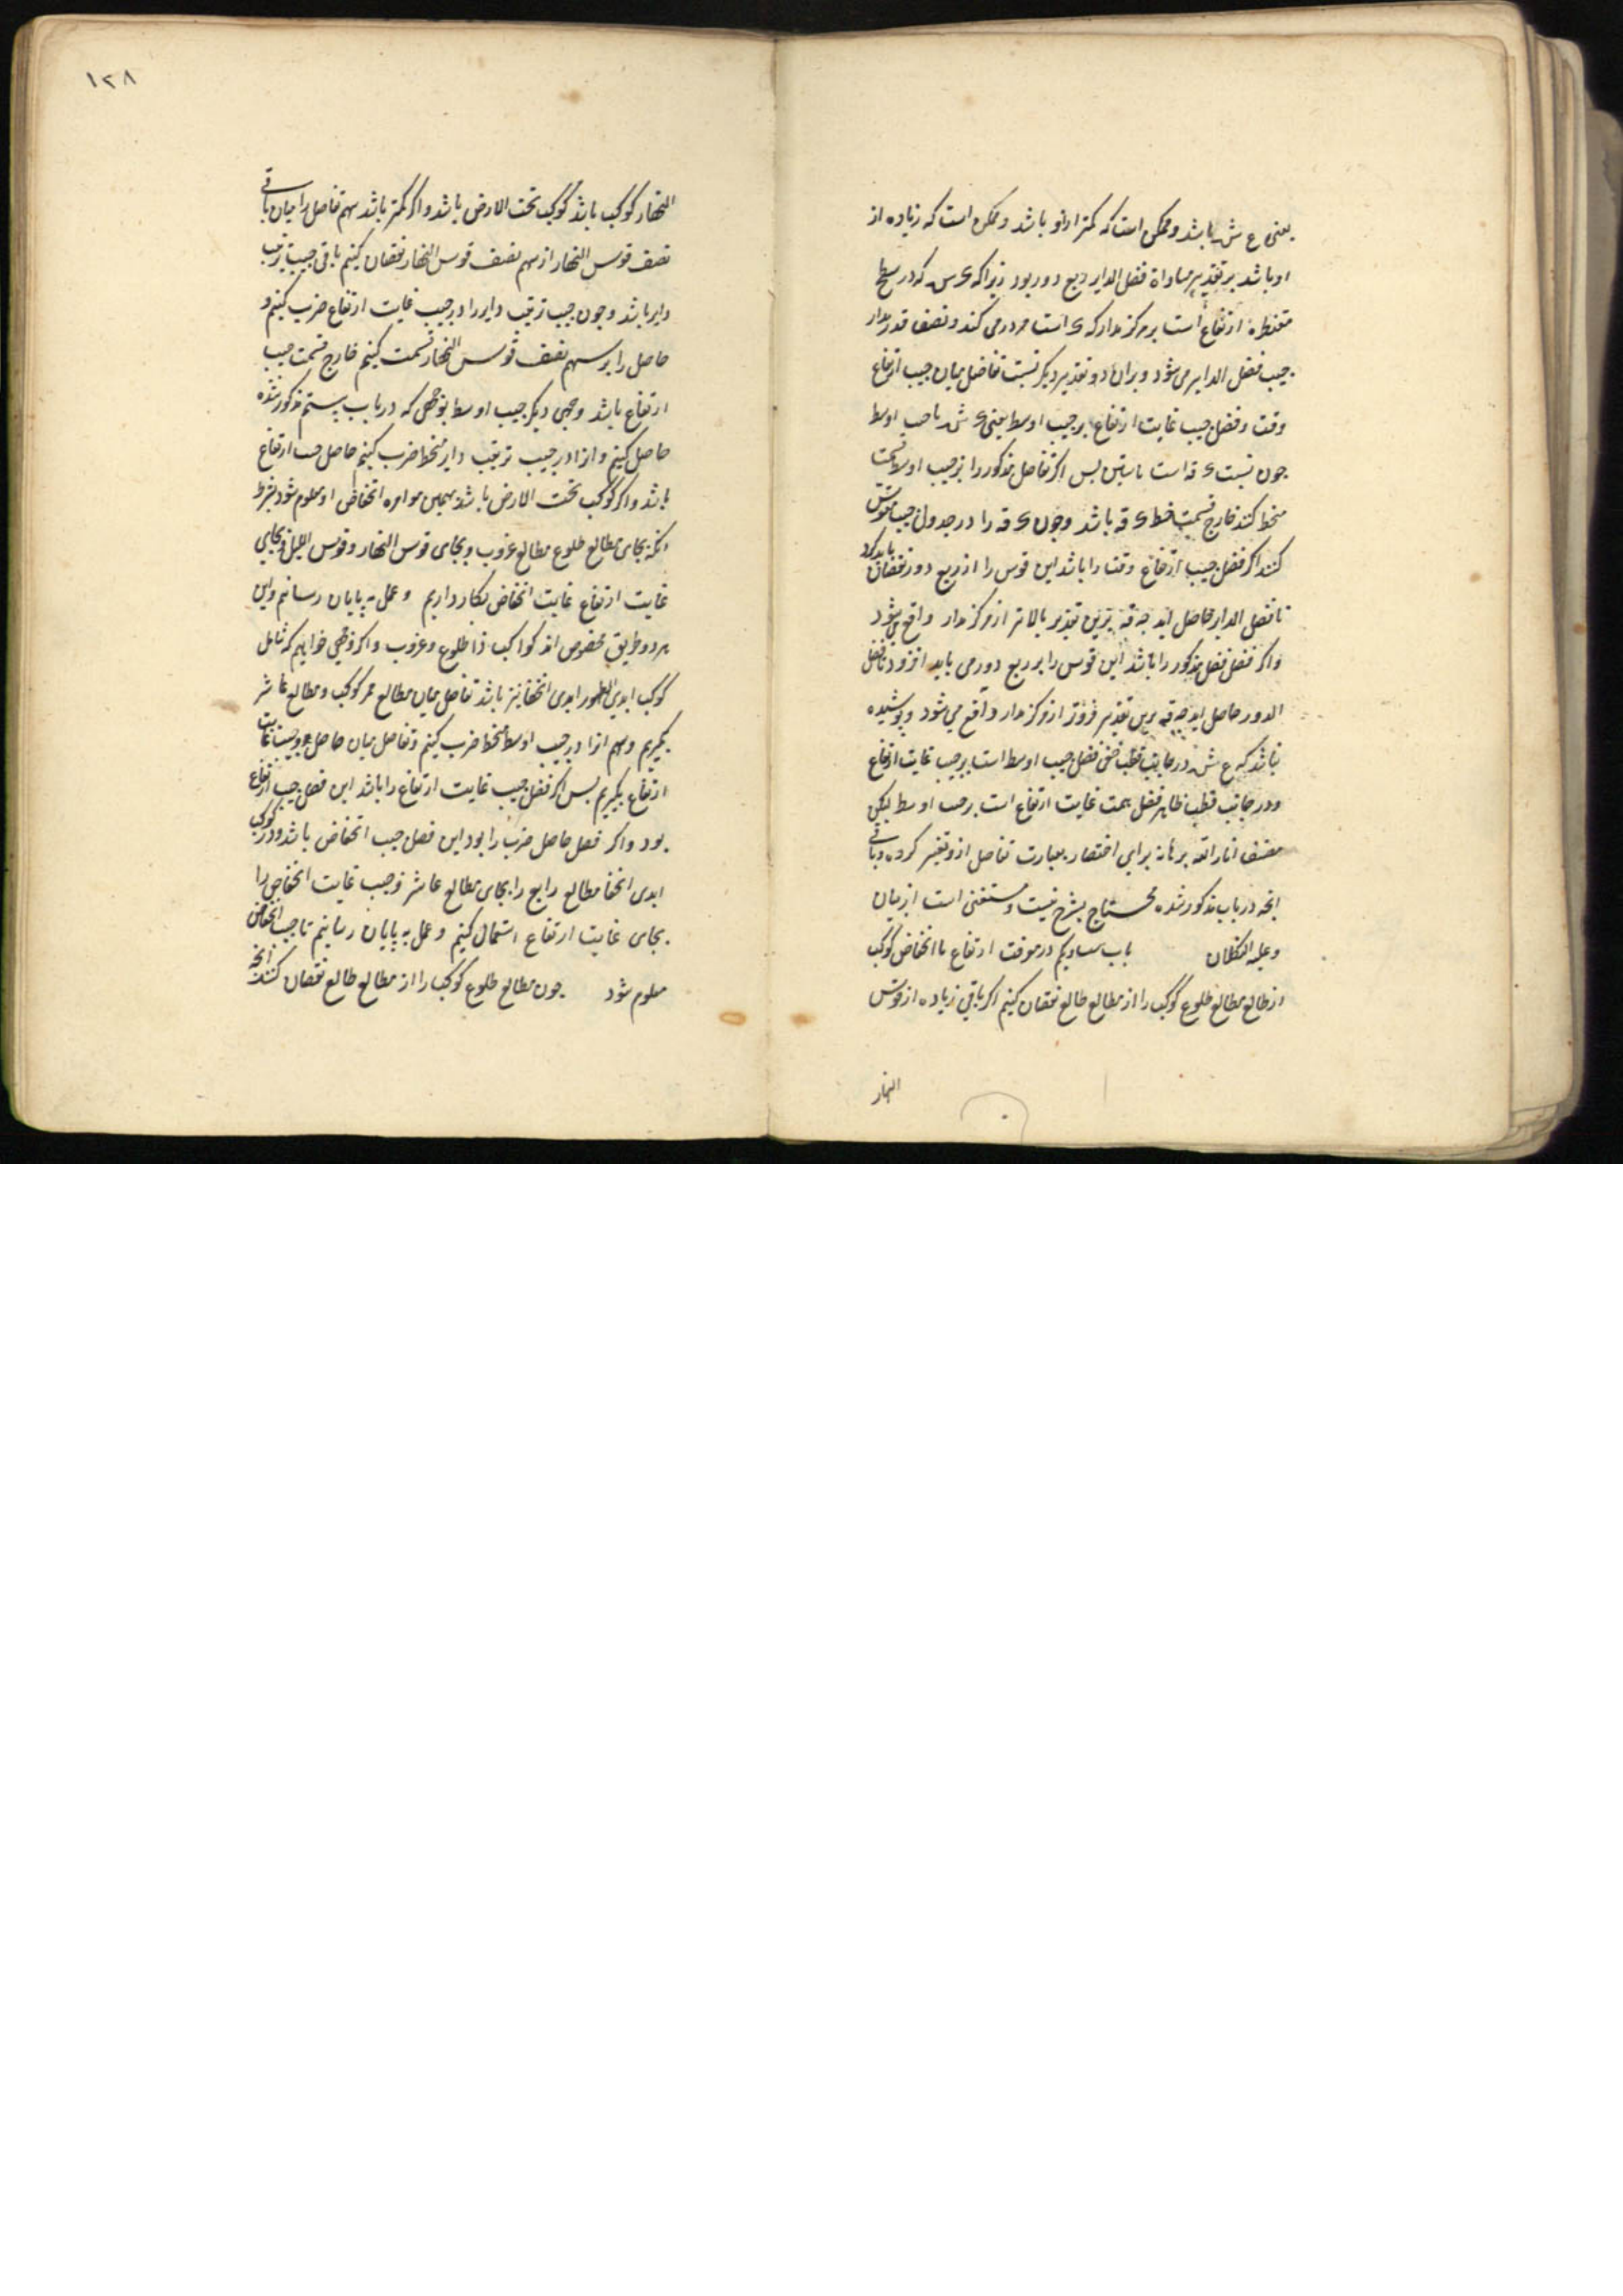 یعنی ع ش باشد و ممکن است که کمتر از او باشد و ممکن است که زیاده از
او باشد بر تقدیر مساواة فضل الدایر ربع دور بود زیرا که ء س که در سطح
مقنطره ارتفاع است بر مرکز مدار که ء است مرور می کند و نصف قدر مدار
جیب فضل الدایر می شود و بر ان دو تقدیر دیکر نسبت تفاضل میان جیب ارتفاع
وقت و فضل جیب غایت ارتفاع بر جیب اوسط یعنی ء ش با جیب اوسط
چون نسبت ء قه است با ستین بس اکر تفاضل مذکور را بر جیب اوسط قسمت
منحط کنند خارج قسمت خط ء قه باشد و چون ء قه را در جدول جیب مقوس
کنند اکر فضل جیب ارتفاع وقت را باشد این قوس را از ربع دور نقصان باید کرد
تا فضل الدایر حاصل اید چه قه برین تقدیر بالاتر از مرکز مدار واقع می شود
و اکر فضل فضل مذکور را باشد این قوس را بر ربع دور می باید افزود تا فضل
الدور حاصل اید چه قه برین تقدیر فروتر از مرکز مدار واقع می شود و پوشیده
نباشد که ع ش در جانب قطب خفی فضل جیب اوسط است بر جیب غایت ارتفاع
و در جانب قطب ظاهر فضل جیب غایت ارتفاع است بر جیب اوسط لیکن
مصنف انار الله برهانه برای اختصار بعبارت تفاضل ازو تعبیر کرده و باقی
انچه در باب مذکور شده محتاج بشرح نیست و مستغنی است از بیان
و علیه التکلان باب سی و یکم در معرفت ارتفاع یا انخفاض کوکب
از طالع مطالع طلوع کوکب را از مطالع طالع نقصان کنیم اکر باقی زیاده از قوس
النهار
١٢٨
النهار کوکب باشد کوکب تحت الارض باشد و اکر کمتر باشد سهم تفاضل را میان باقی
نصف قوس النهار از سهم نصف قوس النهار نقصان کنیم باقی جیب ترتیب
دایر باشد و چون جیب ترتیب دایر را در جیب غایت ارتفاع ضرب کنیم و
حاصل را بر سهم نصف قوس النهار قسمت کنیم خارج قسمت جیب
ارتفاع باشد وجهی دیکر جیب اوسط بوجهی که در باب بیستم مذکور شده
حاصل کنیم و انرا در جیب ترتیب دایر منحط ضرب کنیم حاصل جیب ارتفاع
باشد و اکر کوکب تحت الارض باشد بهمین موامره انخفاض او معلوم شود بشرط
انکه بجای مطالع طلوع مطالع غروب و بجای قوس النهار قوس اللیل و بجای
غایت ارتفاع غایت انخفاض بکار داریم و عمل به پایان رسانیم و این
هر دو طریق مخصوص اند کواکب ذا طلوع و غروب و اکر وجهی خواهیم که شامل
کوکب ابدی الظهور ابدی الخفا نیز باشد تفاضل میان مطالع ممر کوکب و مطالع عاشر
بکیریم و سهم انرا در جیب اوسط منحط ضرب کنیم و تفاضل میان حاصل و جیب غایت
ارتفاع بکیریم بس اکر فضل جیب غایت ارتفاع را باشد این فضل جیب ارتفاع
بود و اکر فضل حاصل ضرب را بود این فضل جیب انخفاض باشد و در کوکب
ابدی الخفا مطالع رابع را بجای مطالع عاشر و جیب غایت انخفاض را
بجای غایت ارتفاع استعمال کنیم و عمل به پایان رسانیم تا جیب انخفاض
معلوم شود چون مطالع طلوع کوکب را از مطالع طالع نقصان کنند انچه